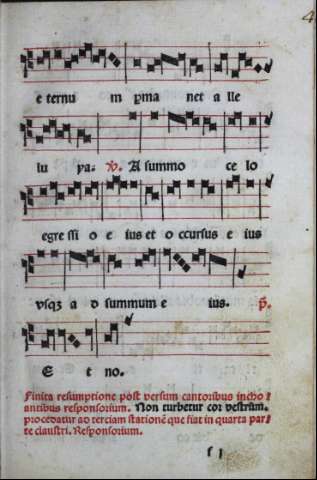 4
e ternu m pma net a lle
lu ya. ꝟ. A summo ce lo
egre ssi o e ius et o ccursus e ius
vsqꝫ a d summum e ius. p̄.
E t no.
Finita resumptione post versum cantoribus incho
antibus responsorium. Non turbetur cor vestrum.
procedatur ad terciam stationē que fiat in quarta par
te claustri. Responsorium.
f j